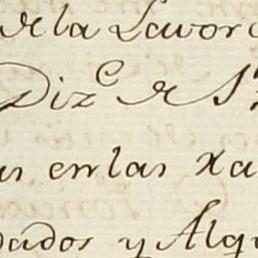 de la Lavor
Diz.e de S.
as en las xa
dados y Alg